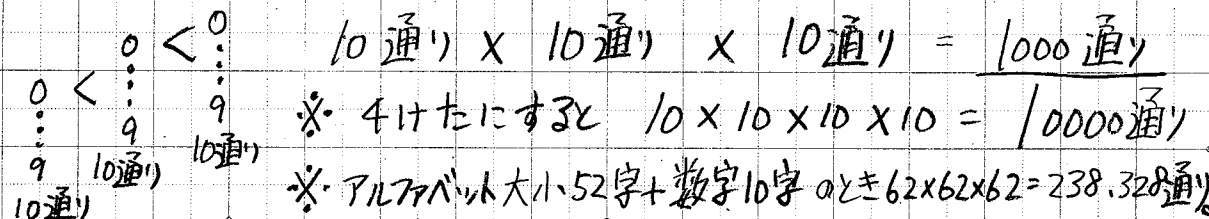 0 < 0 < 0
⋮ ⋮ ⋮
9 9 9
10通り 10通り 10通り
10通り × 10通り × 10通り = 1000通り
※ 4けたにすると 10×10×10×10 = 10000通り
※ アルファベット大小52字+数字10字のとき62×62×62=238.328通り